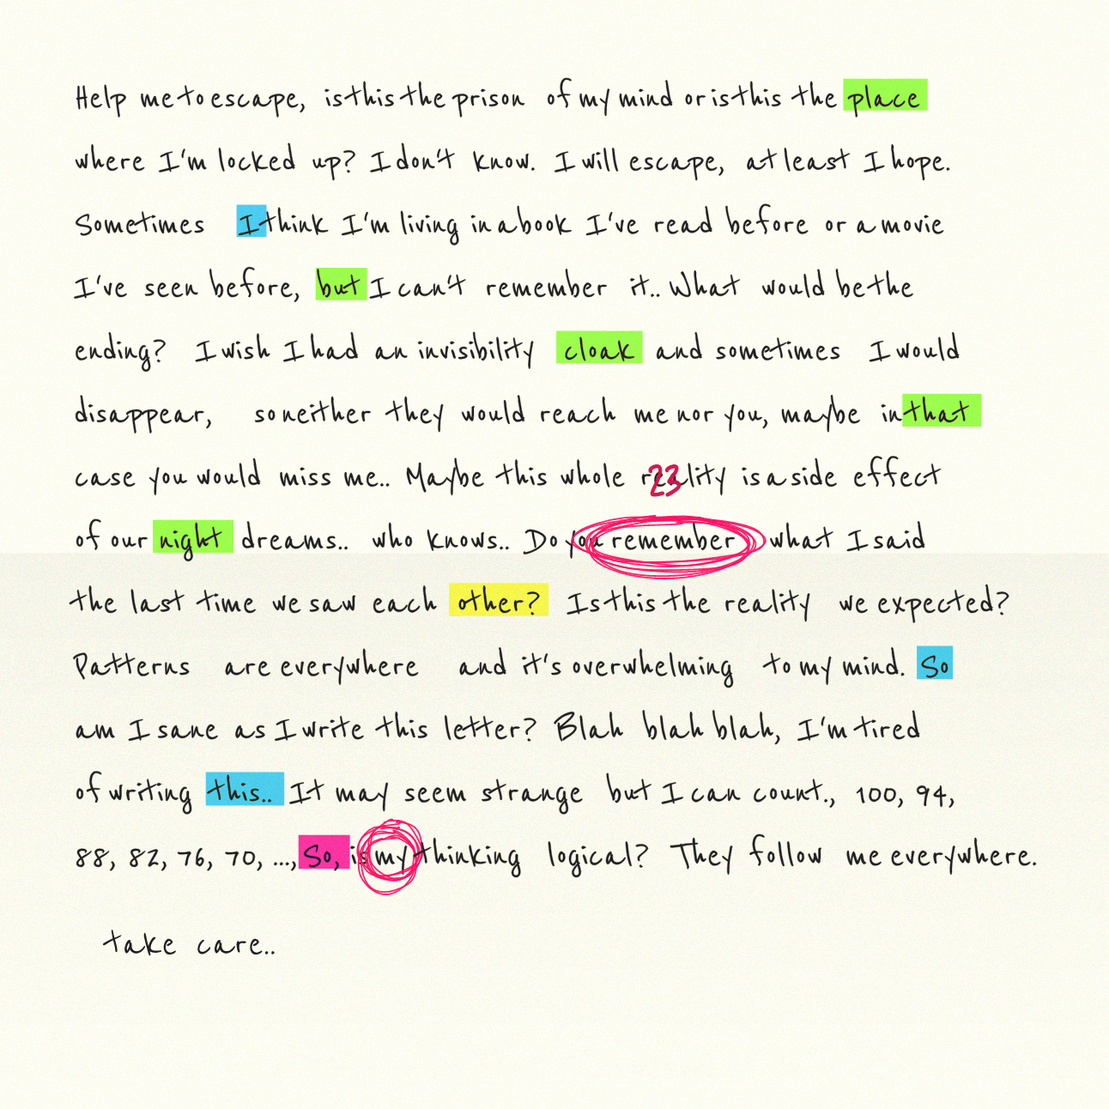 Help me to escape, is this the prison of my mind or is this the place
where I'm locked up? I don't know. I will escape, at least I hope.
Sometimes I think I'm living in a book I've read before or a movie
I've seen before, but I can't remember it.. What would be the
ending? I wish I had an invisibility cloak and sometimes I would
disappear, so neither they would reach me nor you, maybe in that
case you would miss me.. Maybe this whole reality is a side effect
23
of our night dreams.. who knows.. Do you remember what I said
the last time we saw each other? Is this the reality we expected?
Patterns are everywhere and it's overwhelming to my mind. So
am I sane as I write this letter? Blah blah blah, I'm tired
of writing this.. It may seem strange but I can count., 100, 94,
88, 82, 76, 70, ..., So, is my thinking logical? They follow me everywhere.
take care..